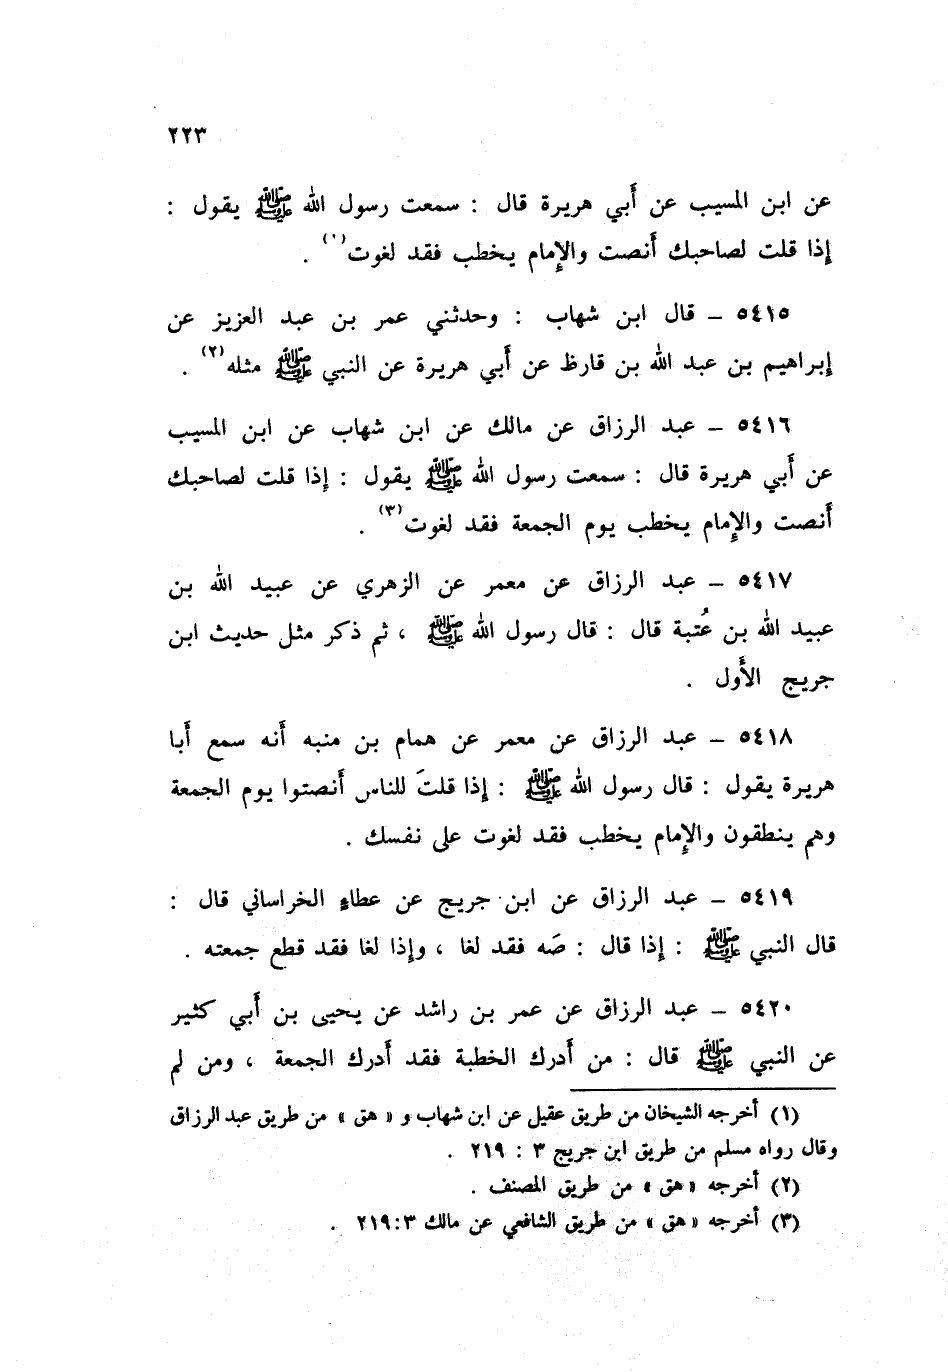 ٢٢٣
عن ابن المسيب عن أَبي هريرة قال : سمعت رسول الله ﷺ يقول :
إذا قلت لصاحبك أَنصت والإِمام يخطب فقد لغوت(١) .
٥٤١٥ – قال ابن شهاب : وحدثني عمر بن عبد العزيز عن
إبراهيم بن عبد الله بن قارظ عن أَبي هريرة عن النبي ﷺ مثله(٢) .
٥٤١٦ – عبد الرزاق عن مالك عن ابن شهاب عن ابن المسيب
عن أَبي هريرة قال : سمعت رسول الله ﷺ يقول : إذا قلت لصاحبك
أَنصت والإِمام يخطب يوم الجمعة فقد لغوت(٣) .
٥٤١٧ – عبد الرزاق عن معمر عن الزهري عن عبيد الله بن
عبيد الله بن عُتبة قال : قال رسول الله ﷺ ، ثم ذكر مثل حديث ابن
جريج الأَول .
٥٤١٨ – عبد الرزاق عن معمر عن همام بن منبه أَنه سمع أَبا
هريرة يقول : قال رسول الله ﷺ : إذا قلتَ للناس أَنصتوا يوم الجمعة
وهم ينطقون والإِمام يخطب فقد لغوت على نفسك .
٥٤١٩ – عبد الرزاق عن ابن جريج عن عطاءٍ الخراساني قال :
قال النبي ﷺ : إذا قال : صَه فقد لغا ، وإذا لغا فقد قطع جمعته .
٥٤٢٠ – عبد الرزاق عن عمر بن راشد عن يحيى بن أَبي كثير
عن النبي ﷺ قال : من أَدرك الخطبة فقد أَدرك الجمعة ، ومن لم
(١) أخرجه الشيخان من طريق عقيل عن ابن شهاب و « هق » من طريق عبد الرزاق
وقال رواه مسلم من طريق ابن جريج ٣ : ٢١٩ .
(٢) أخرجه « هق » من طريق المصنف .
(٣) أخرجه « هق » من طريق الشافعي عن مالك ٢١٩:٣ .